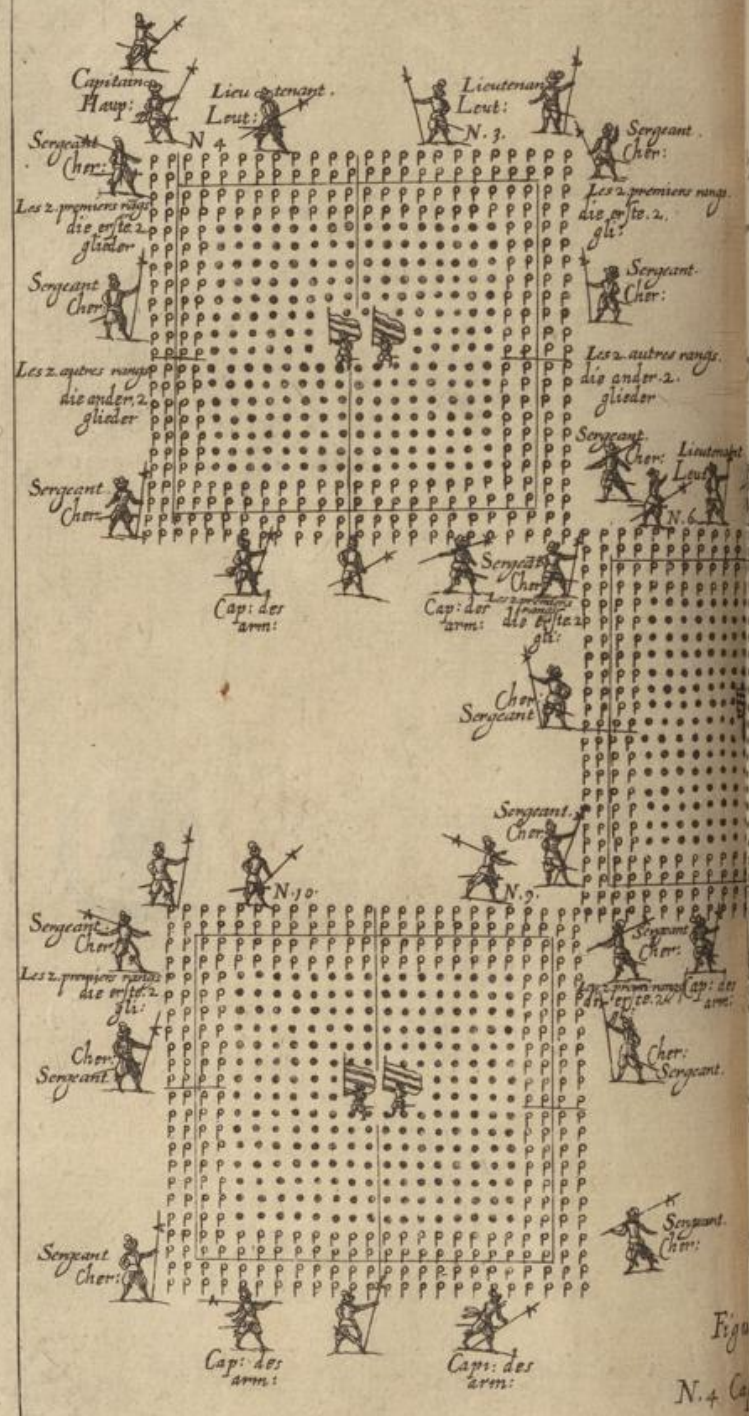 Capitaine
Haup:
Lieutenant.
Leut:
Lieutenan
Leut:
N. 4
N. 3.
Sergeant
Cher:
Sergeant.
Cher:
Les 2. premiers rangs
die erste. 2
glieder
Les 2. premiers rangs.
die erste. 2.
gli:
Sergeant
Cher
Sergeant.
Cher:
Les 2. autres rangs
die ander. 2
glieder
Les 2. autres rangs.
die ander. 2.
glieder
Sergeant.
Cher:
Lieutenant
Leut
N. 6.
Sergeant.
Cher:
Cap: des
arm:
Cap: des
arm:
Sergeant
Cher
Les 2. premiers
rangs
die erste. 2
gli:
Cher
Sergeant
Sergeant.
Cher
N. 10.
N. 9.
Sergeant
Cher:
Les 2. premiers rangs
die erste. 2
gli:
Sergeant
Cher:
Les 2. prem: rangs
die erste. 2
Cap: des
arm:
Cher:
Sergeant
Cher:
Sergeant.
Sergeant
Cher:
Sergeant.
Cher:
Cap: des
arm:
Capi: des
arm:
Figu
N. 4 Ca